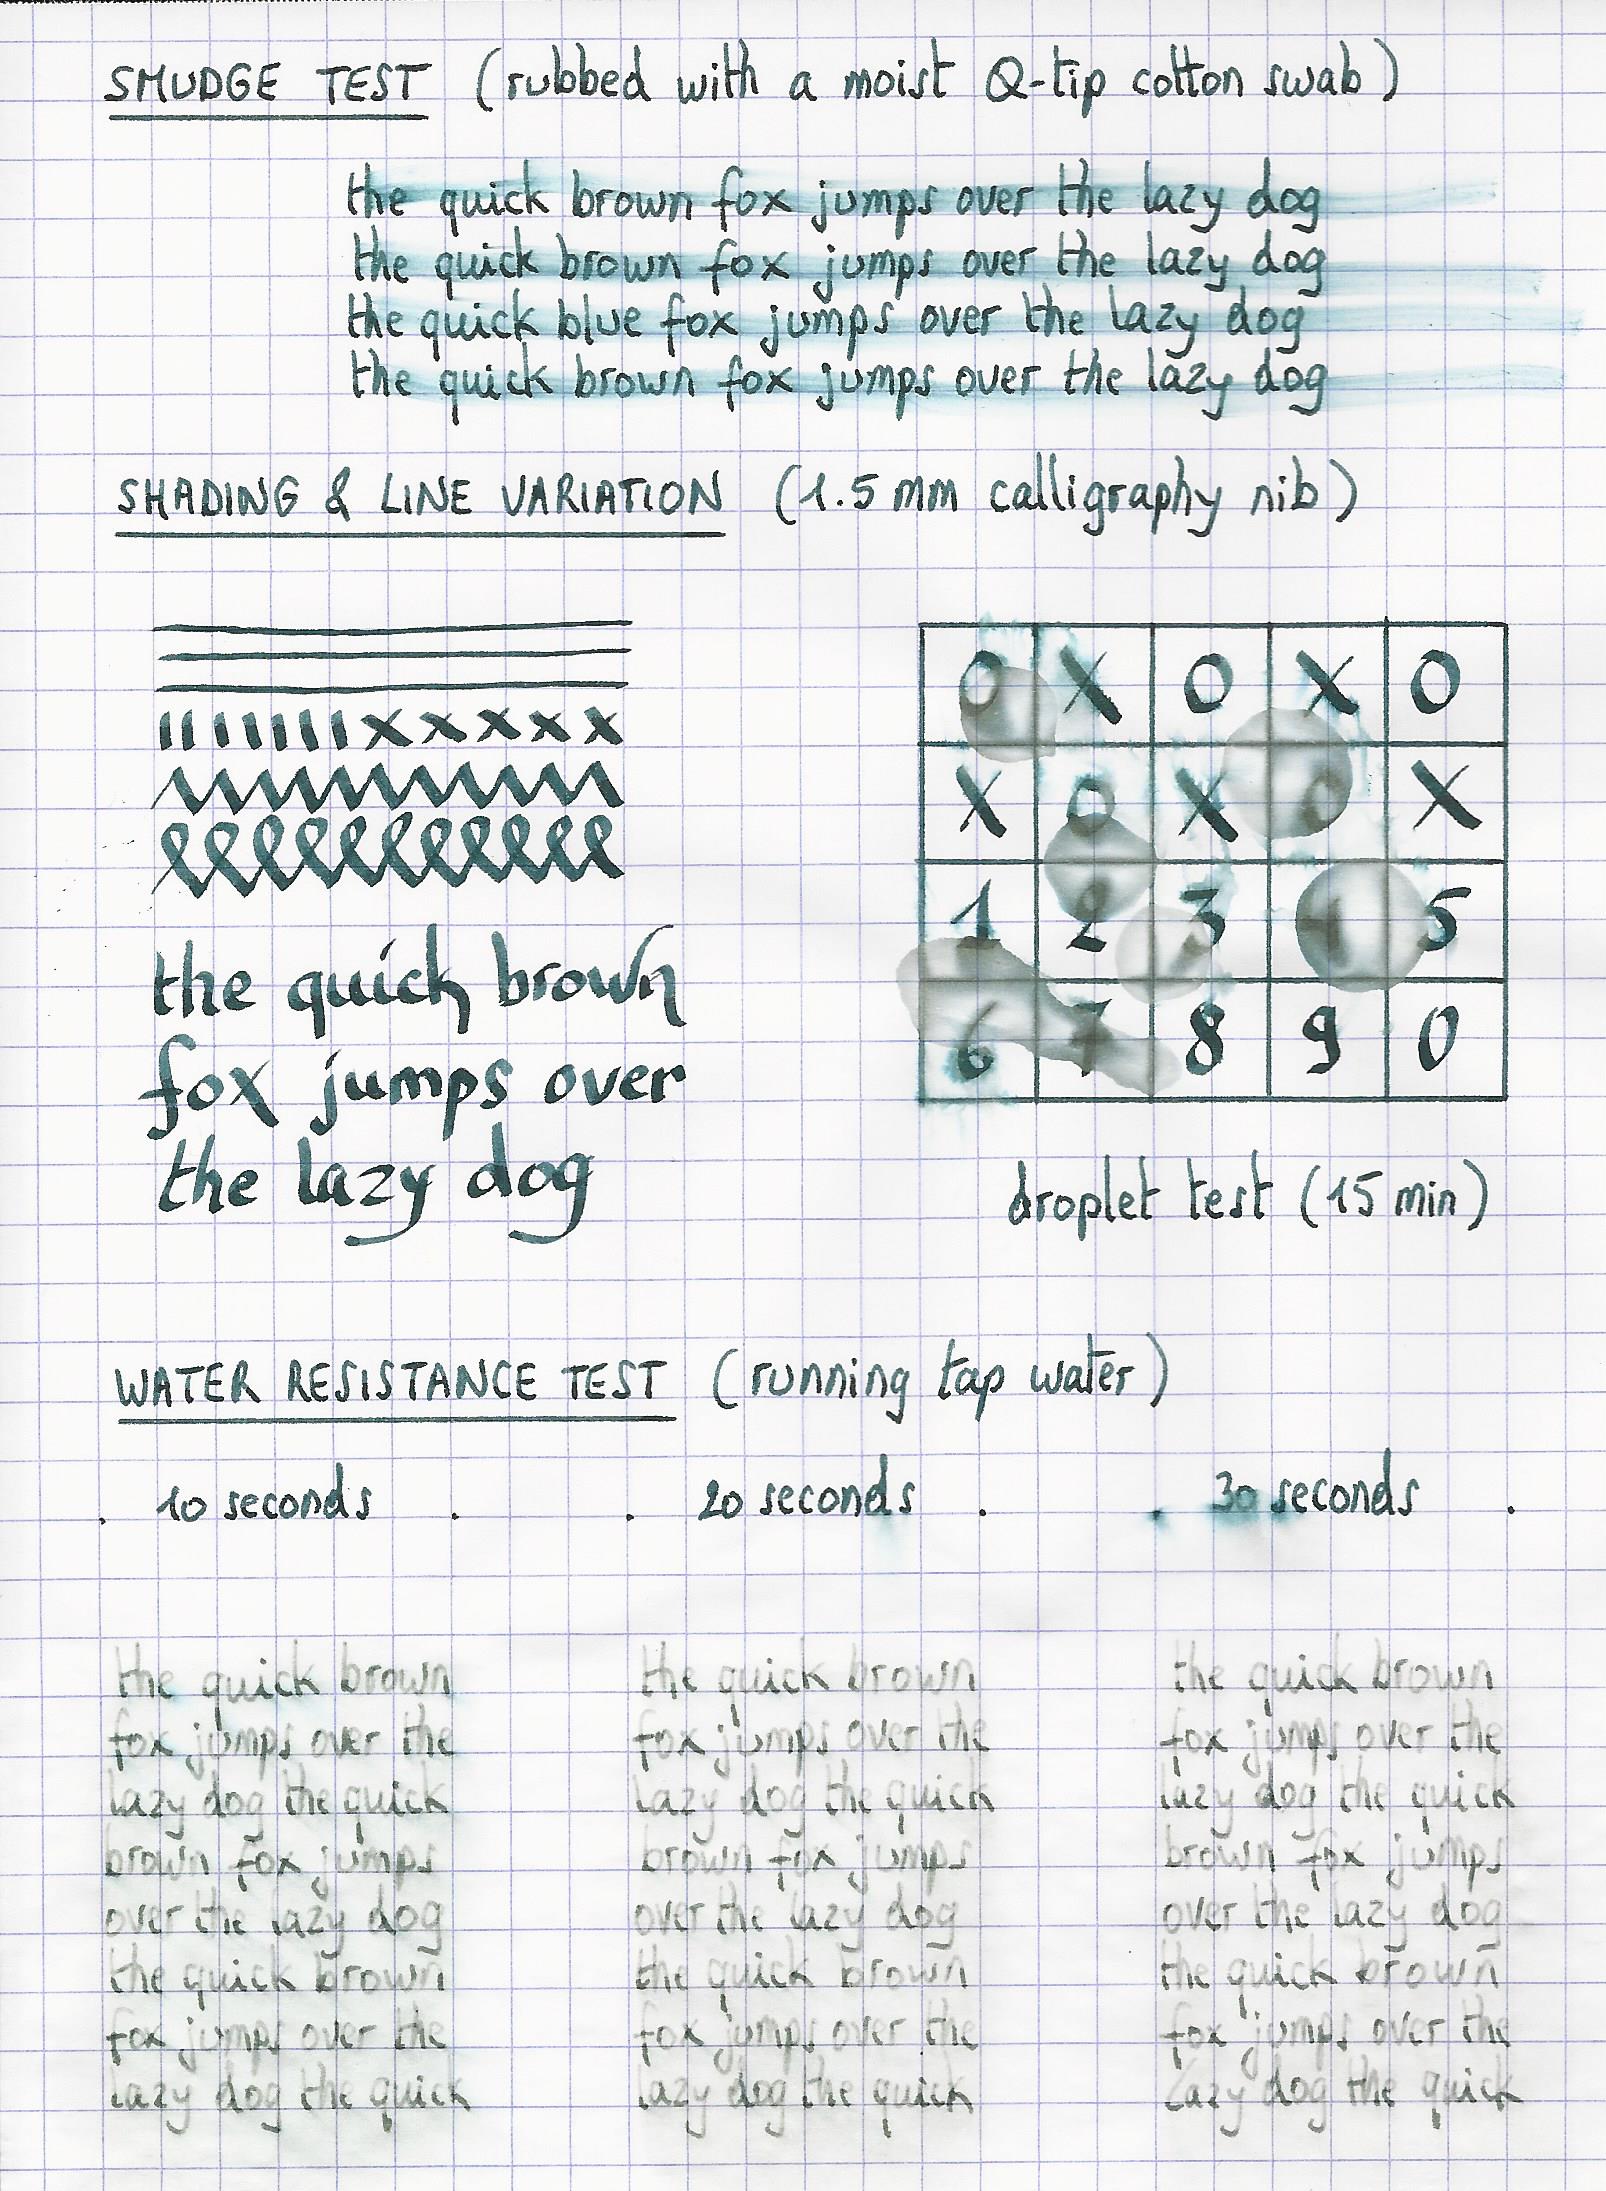 SMUDGE TEST (rubbed with a moist Q-tip cotton swab)
the quick brown fox jumps over the lazy dog
the quick brown fox jumps over the lazy dog
the quick blue fox jumps over the lazy dog
the quick brown fox jumps over the lazy dog
SHADING & LINE VARIATION (1.5 mm calligraphy nib)
the quick brown
fox jumps over
the lazy dog
O X O X O
X O X O X
1 2 3 4 5
6 7 8 9 0
droplet test (15 min)
WATER RESISTANCE TEST (running tap water)
. 10 seconds . . 20 seconds . . 30 seconds .
the quick brown
fox jumps over the
lazy dog the quick
brown fox jumps
over the lazy dog
the quick brown
fox jumps over the
lazy dog the quick
the quick brown
fox jumps over the
lazy dog the quick
brown fox jumps
over the lazy dog
the quick brown
fox jumps over the
lazy dog the quick
the quick brown
fox jumps over the
lazy dog the quick
brown fox jumps
over the lazy dog
the quick brown
fox jumps over the
lazy dog the quick